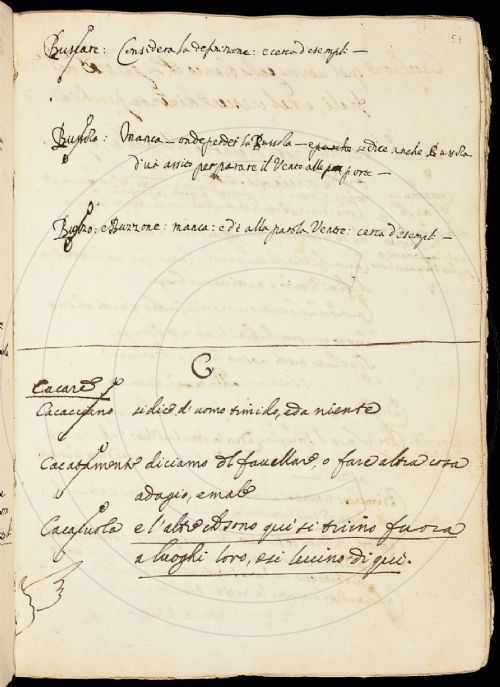 54
Buscare: Considera la definizione: e cerca d'esempli —
Bussola: Manca — onde perder la Bussola — e si dice anche Bussola
d'un assito per parare il Vento alle porte —
Buzzo; e Buzzone: manca: ed è alla parola Ventre: cerca d'esempli —
C
Cacare
Cacacciano si dice d'uomo timido, e da niente
Cacatamente diciamo del favellare, o fare altra cosa
adagio, e male
Cacaiuola e l'altre che sono qui si tirino fuora
a luoghi loro, e si levino di qui.